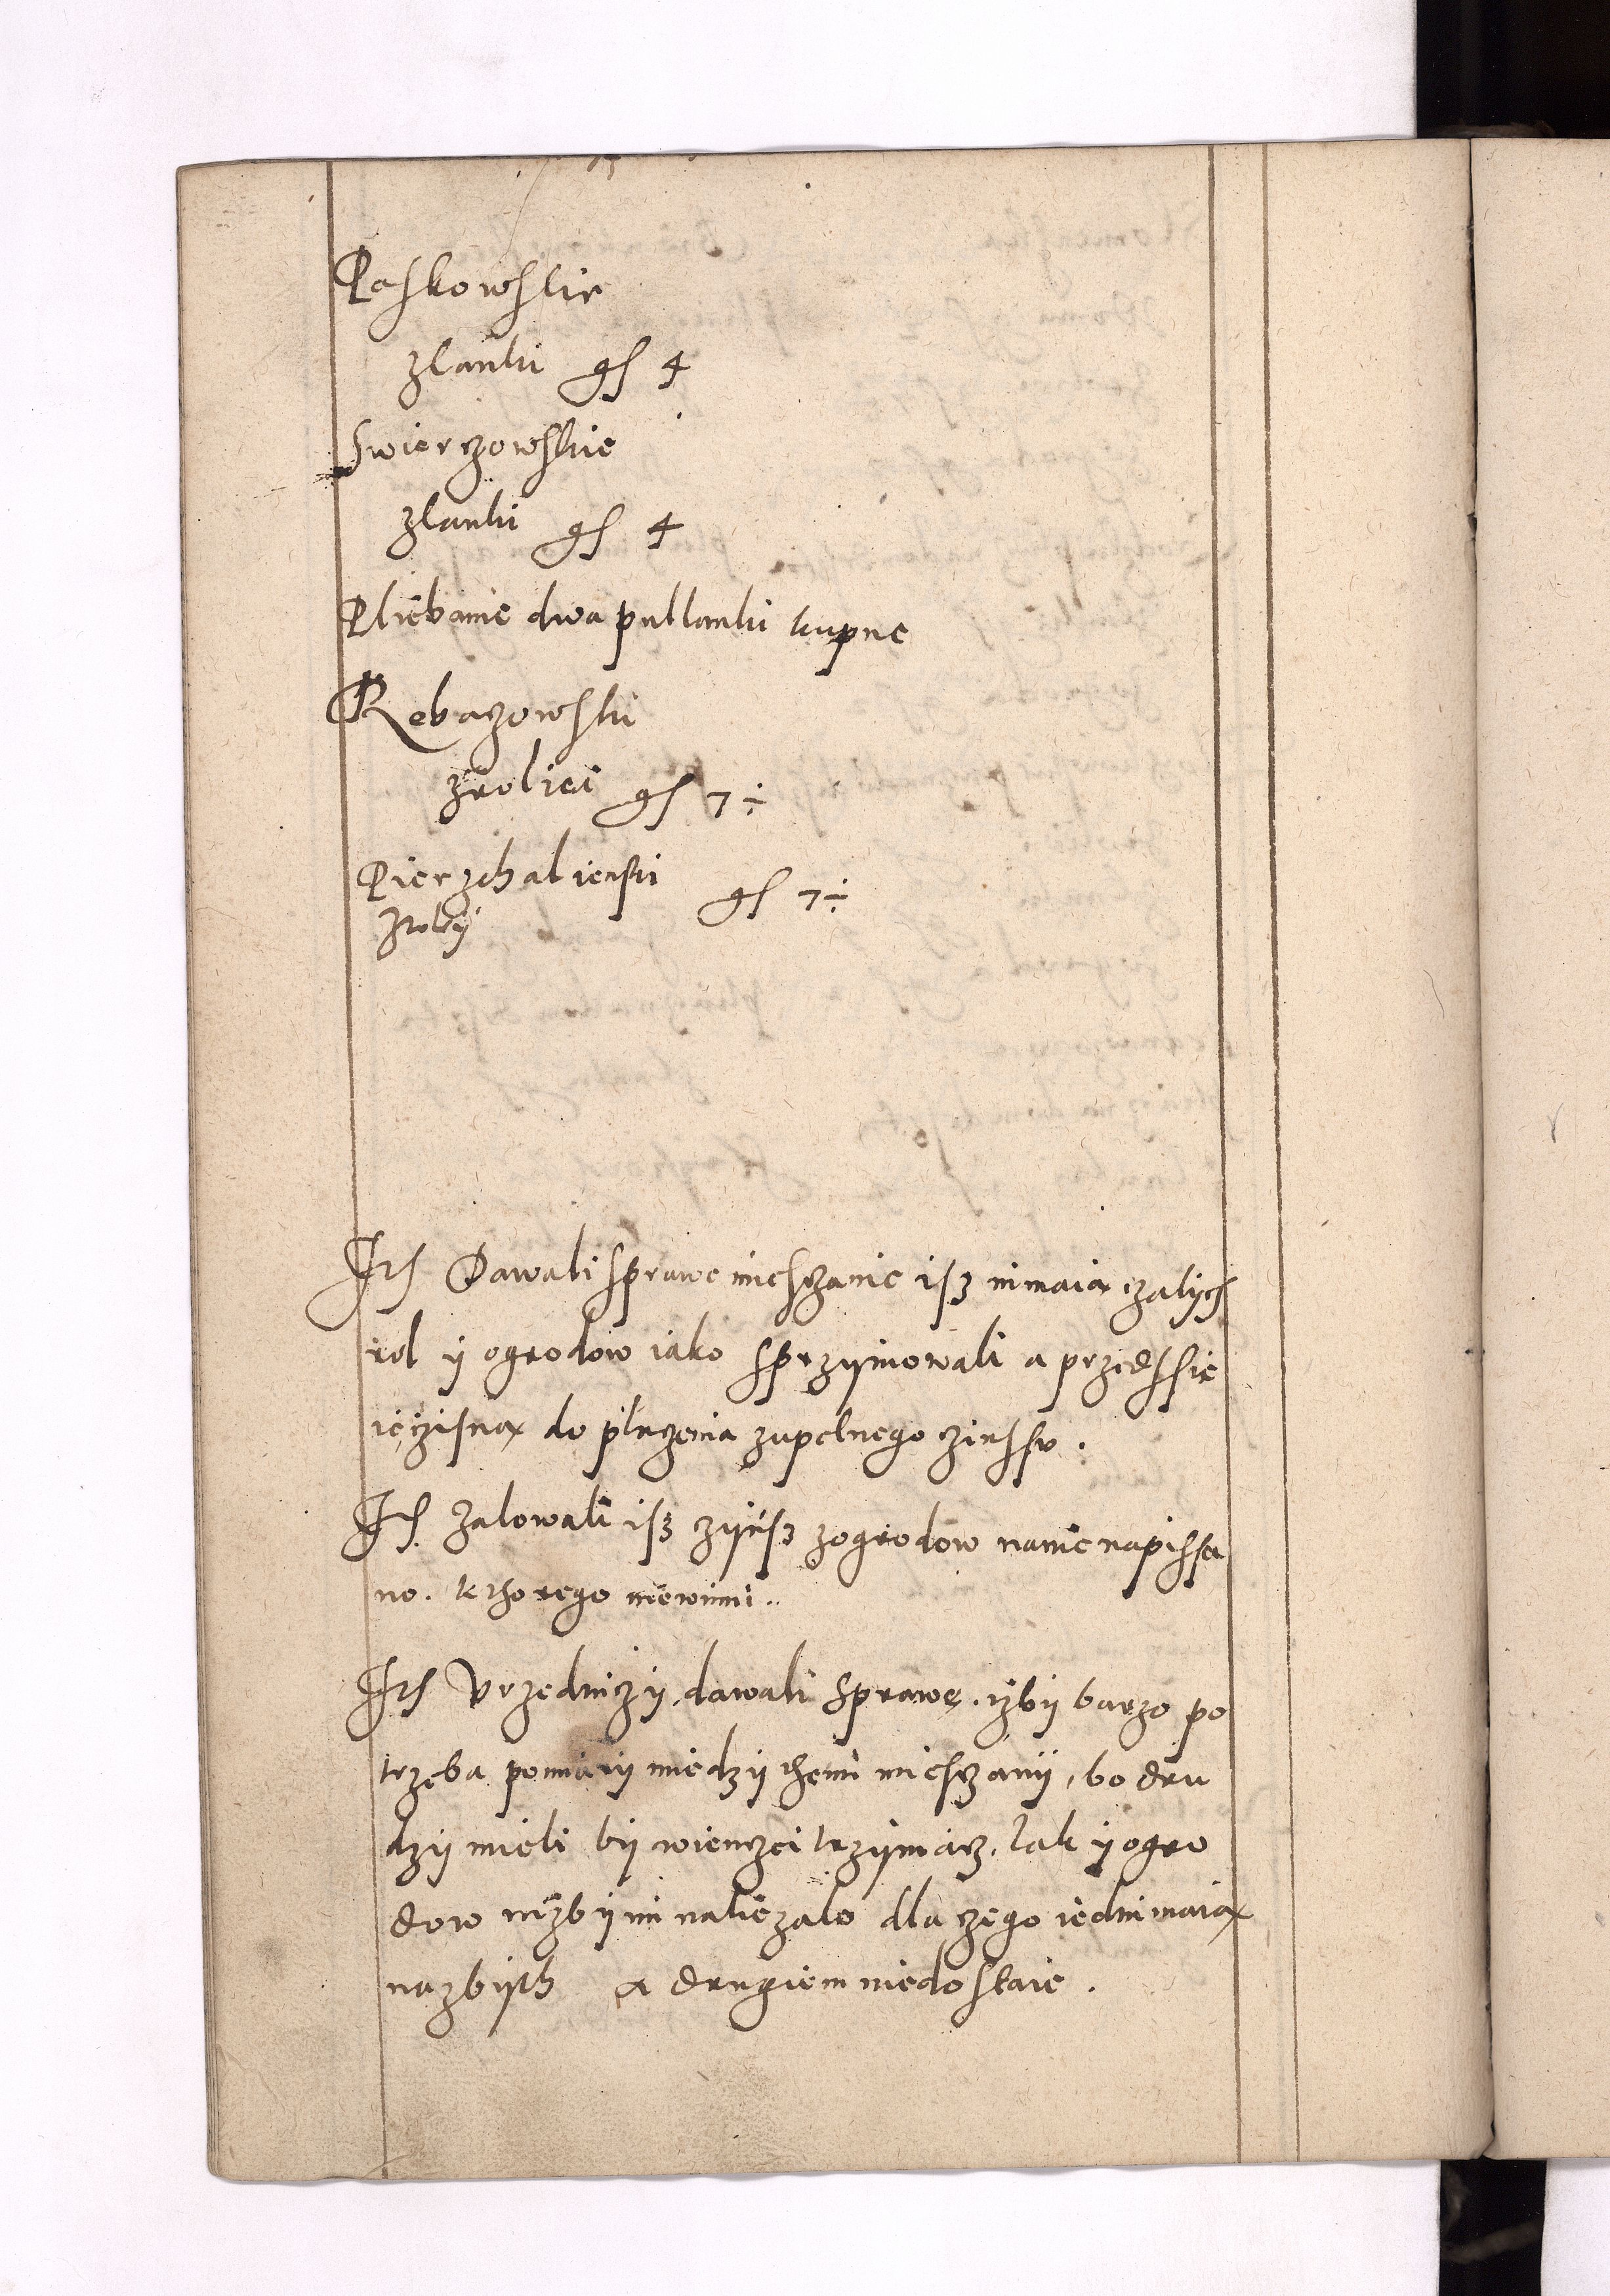 Paskowskie
zlanki gs 4
Swierczowskie
zlanki gs 4
Pliebanie dwa pullanki kupne
Rebaczowski
zroliei gs 7 ÷
Pierzchalienski gs 7 ÷
zroliy
Its Dawali sprawe miesczanie isz nimaia czalych
rol y ogrodow iako sprzyimowali a przedssie
ie czisna do pluczenia zupelnego czinssu.
Its zalowali isz czynsz zogrodow nanie napissa
no. kthorego niewinni.
Its Vrzedniczy dawali sprawe. yzby barzo po
trzeba pomiary miedzy themi miesczany, bo dru
dzy mieli by wienczei trzymacz. lak y ogro
dow nizby im naliezalo dla czego iedni maia
nazbyth a drugiem niedostaie.